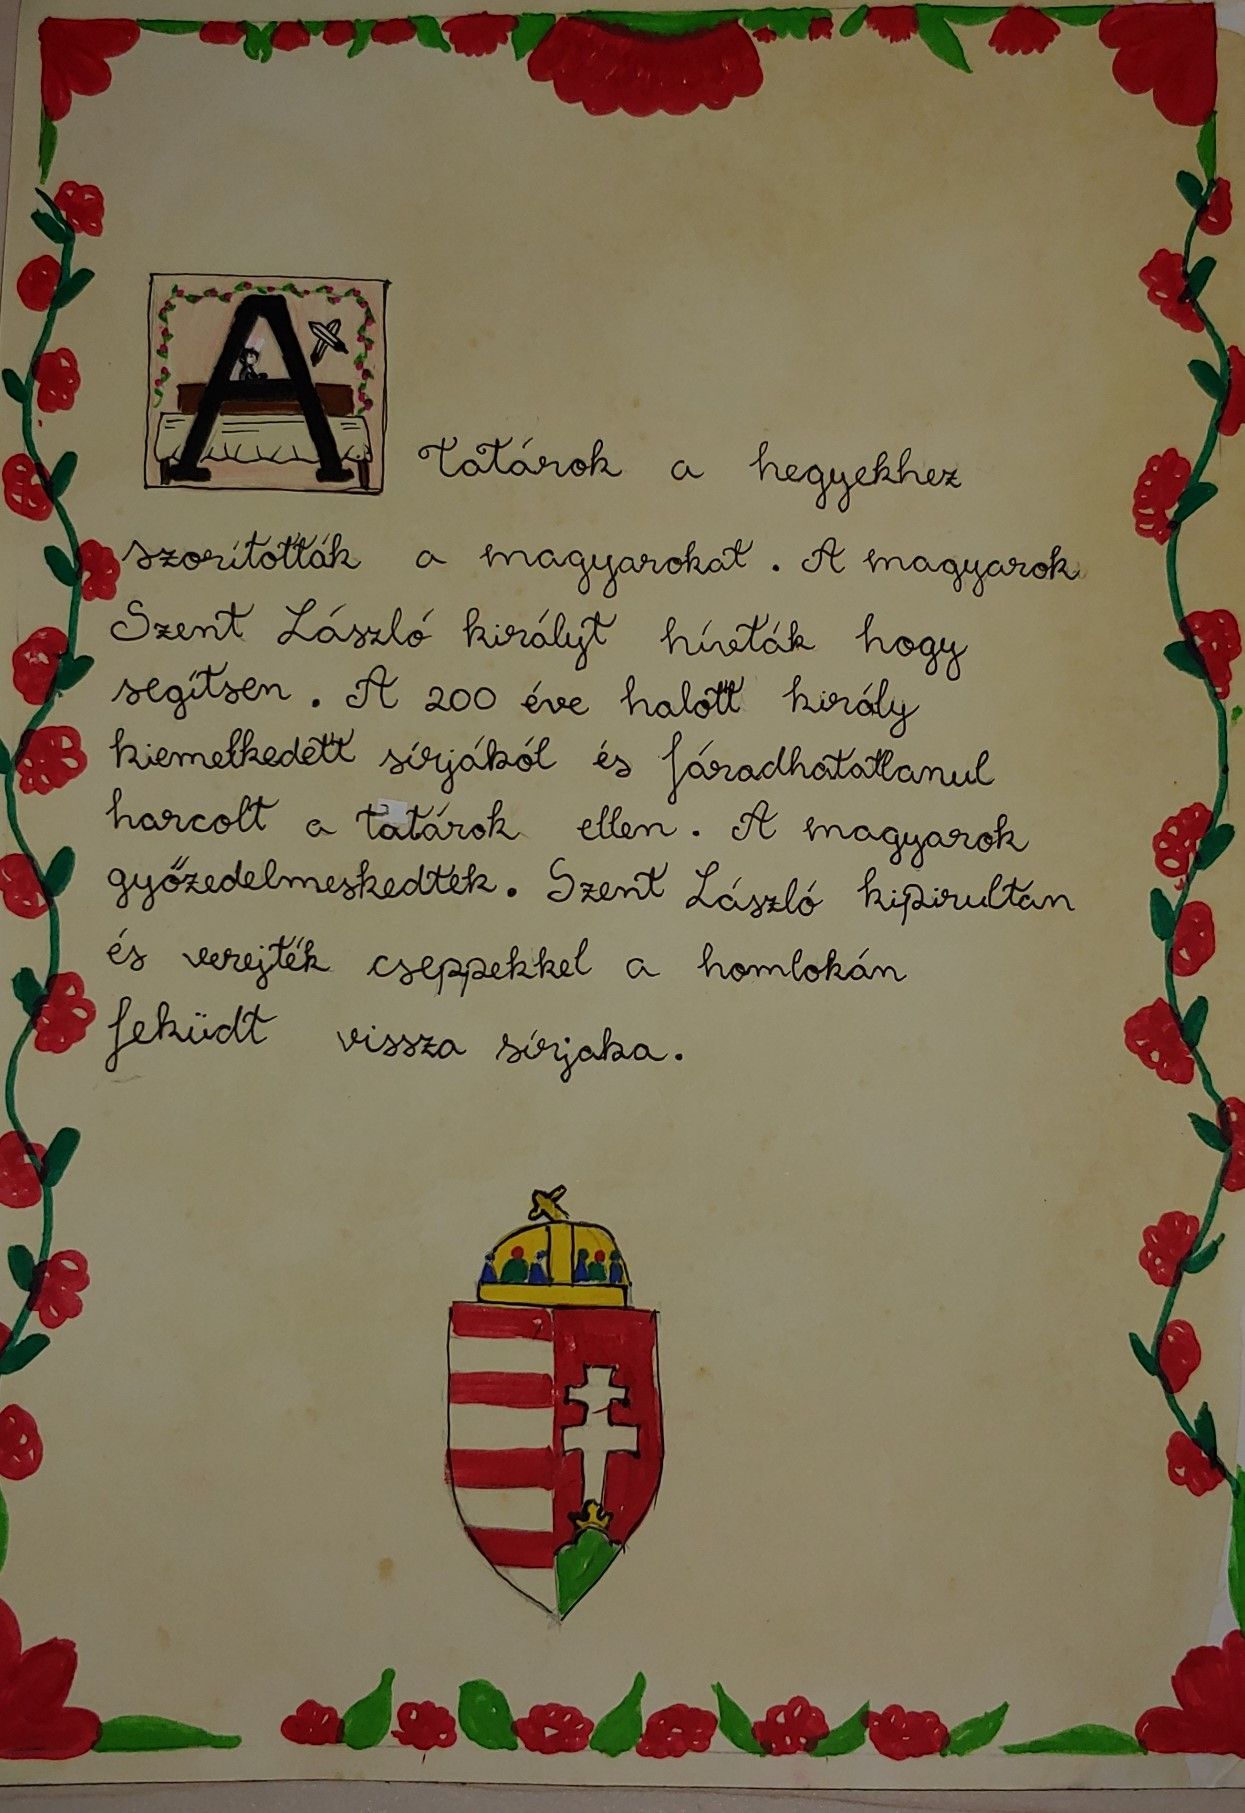 A tatárok a hegyekhez
szorították a magyarokat. A magyarok
Szent László királyt hívták hogy
segítsen. A 200 éve halott király
kiemelkedett sírjából és fáradhatatlanul
harcolt a tatárok ellen. A magyarok
győzedelmeskedtek. Szent László kipirultan
és verejték cseppekkel a homlokán
feküdt vissza sírjaba.